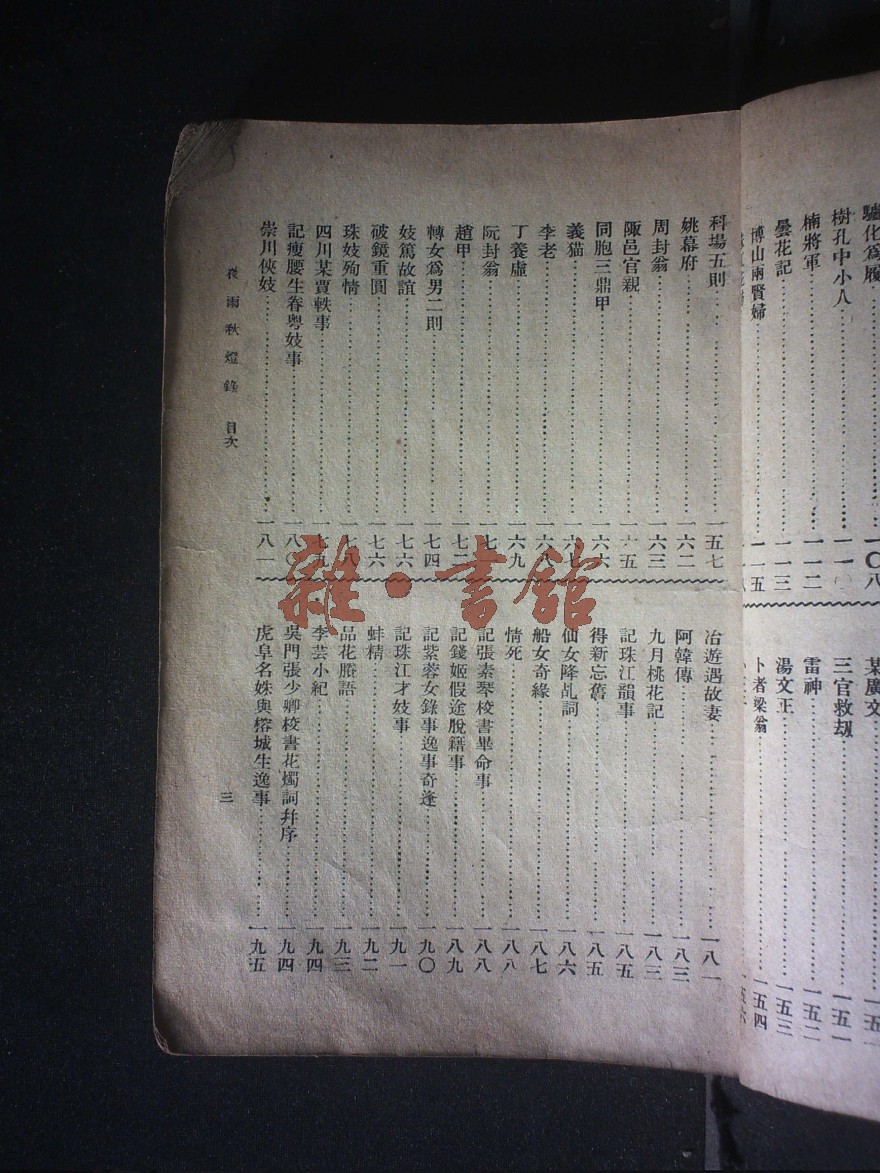 驢化為履⋯⋯一〇八
樹孔中小人⋯⋯一一〇
楠將軍⋯⋯一一二
曇花記⋯⋯一一三
博山兩賢婦⋯⋯一一五
某廣文⋯⋯一五
三官救刼⋯⋯一五一
雷神⋯⋯一五二
湯文正⋯⋯一五三
卜者梁翁⋯⋯一五四
一五六
科場五則⋯⋯一五七
姚幕府⋯⋯一六二
周封翁⋯⋯一六三
陬邑官親⋯⋯一六五
同胞三鼎甲⋯⋯一六六
義猫⋯⋯一六七
李老⋯⋯一六八
丁養虛⋯⋯一六九
阮封翁⋯⋯一七
趙甲⋯⋯一七二
轉女為男二則⋯⋯一七四
妓篤故誼⋯⋯一七六
破鏡重圓⋯⋯一七六
珠妓殉情⋯⋯一七八
四川某賈軼事⋯⋯一七九
記瘦腰生眷粤妓事⋯⋯一八〇
崇川俠妓⋯⋯一八一
冶遊遇故妻⋯⋯一八一
阿韓傳⋯⋯一八三
九月桃花記⋯⋯一八三
記珠江韻事⋯⋯一八五
得新忘舊⋯⋯一八五
仙女降乩詞⋯⋯一八六
船女奇緣⋯⋯一八七
情死⋯⋯一八八
記張素琴校書畢命事⋯⋯一八八
記錢姬假途脫籍事⋯⋯一八九
記紫蓉女錄事逸事奇逢⋯⋯一九〇
記珠江才妓事⋯⋯一九一
蚌精⋯⋯一九二
品花賸語⋯⋯一九三
李芸小紀⋯⋯一九四
吳門張少卿校書花燭詞幷序⋯⋯一九四
虎阜名姝與榕城生逸事⋯⋯一九五
夜雨秋燈錄 目次
三
雜·書館